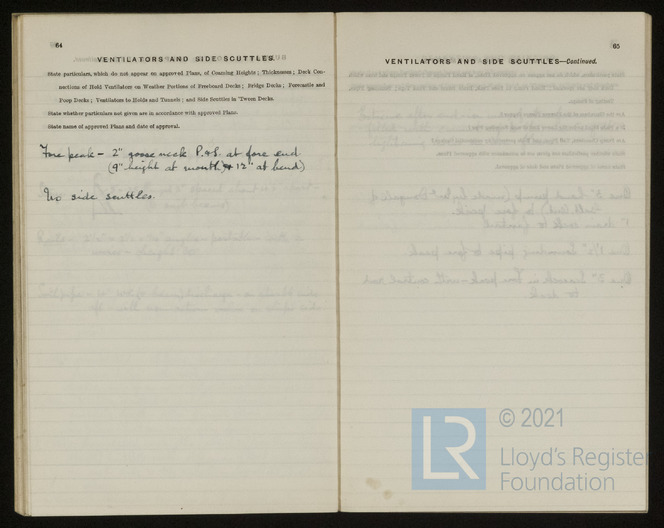 64
VENTILATORS AND SIDE SCUTTLES.
State particulars, which do not appear on approved Plans, of Coaming Heights; Thicknesses; Deck Con-
nections of Hold Ventilators on Weather Portions of Freeboard Decks; Bridge Decks; Forecastle and
Poop Decks; Ventilators to Holds and Tunnels; and Side Scuttles in Tween Decks.
State whether particulars not given are in accordance with approved Plans.
State name of approved Plans and date of approval.
Fore peak - 2" goose neck P.&S. at fore end
(9" height at mouth, 12" at bend)
No side scuttles.
65
VENTILATORS AND SIDE SCUTTLES—Continued.
LR
© 2021
Lloyd's Register
Foundation